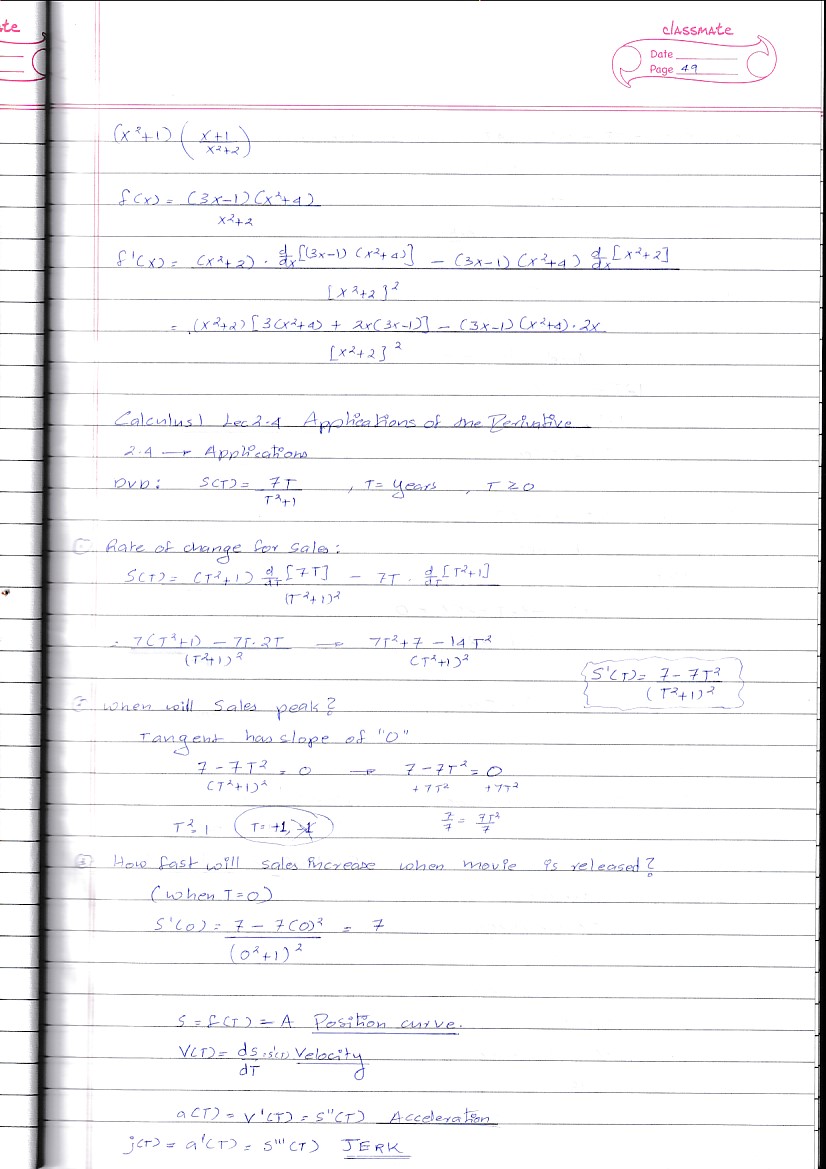 te
classmate
Date
Page 49
(x²+1) (x+1 / x²+2)
f(x) = (3x-1)(x²+4) / x²+2
f'(x) = (x²+2) · d/dx[(3x-1)(x²+4)] - (3x-1)(x²+4) d/dx[x²+2] / [x²+2]²
= (x²+2)[3(x²+4) + 2x(3x-1)] - (3x-1)(x²+4)·2x / [x²+2]²
Calculus 1 Lec 2.4 Applications of the Derivative
2.4 → Applications
DVD: S(T) = 7T / T²+1 , T = Years , T ≥ 0
① Rate of change for sales:
S(T) = (T²+1) d/dT[7T] - 7T · d/dT[T²+1] / (T²+1)²
= 7(T²+1) - 7T·2T / (T²+1)² → 7T²+7-14T² / (T²+1)²
S'(T) = 7-7T² / (T²+1)²
② When will Sales peak?
Tangent has slope of "0"
7-7T² / (T²+1)² = 0 → 7-7T² = 0
+7T² +7T²
7/7 = 7T²/7
T²=1 T= +1, -1
③ How fast will sales increase when movie is released?
(when T=0)
S'(0) = 7-7(0)² / (0²+1)² = 7
S = f(T) = A Position curve.
V(T) = ds/dT = s'(T) Velocity
a(T) = V'(T) = S''(T) Acceleration
j(T) = a'(T) = S'''(T) JERK